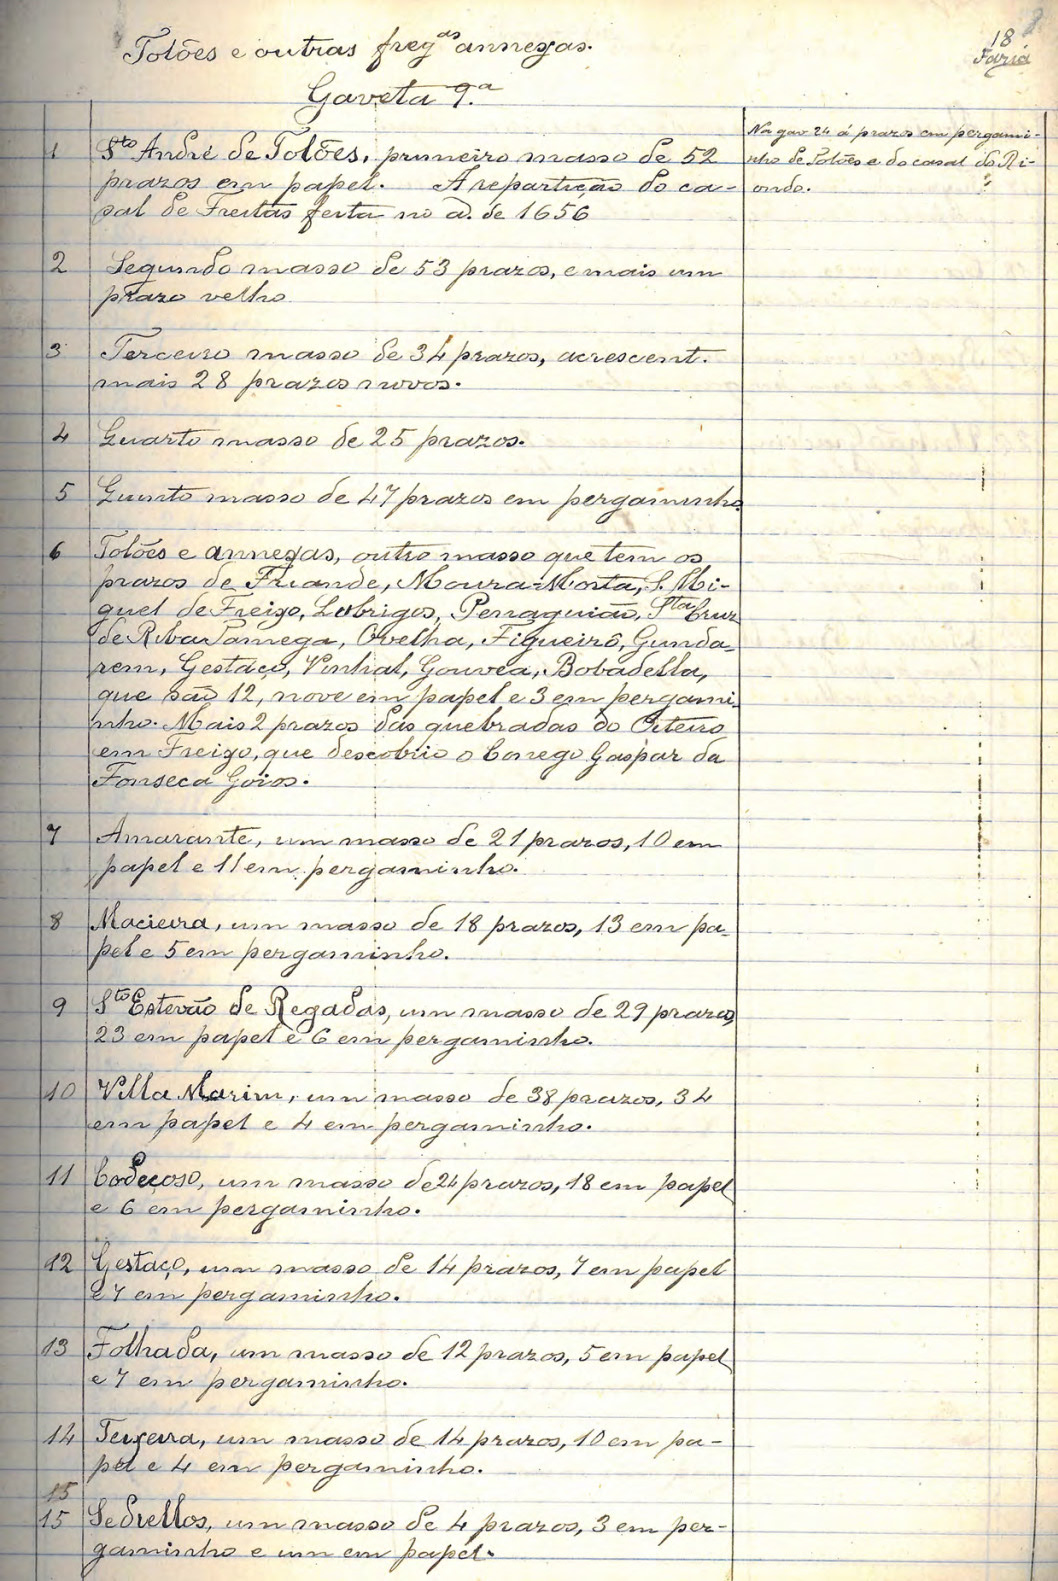 18
Faria
Tolões e outras freg.as annexas.
Gaveta 9.a
Na gav. 24 á prazos em pergami-
nho de Tolões e do casal do Ri-
ondo.
1 Sto André de Tolões, primeiro masso de 52
prazos em papel. A repartição do ca-
sal de Freitas feita no a. de 1656
2 Segundo masso de 53 prazos, e mais um
prazo velho
3 Terceiro masso de 34 prazos, acrescent.
mais 28 prazos novos.
4 Quarto masso de 25 prazos.
5 Quinto masso de 47 prazos em pergaminho.
6 Tolões e annexas, outro masso que tem os
prazos de Friande, Moura-Morta, S. Mi-
guel de Freixo, Lobrigos, Penaguião, Sta Cruz
de Riba Tamega, Ovelha, Figueiró, Gunda-
rem, Gestaço, Vinhal, Gouvea, Bobadella,
que são 12, nove em papel e 3 em pergami-
nho. Mais 2 prazos das quebradas do Oiteiro
em Freixo, que descobrio o Conego Gaspar da
Fonseca Goios.
7 Amarante, um masso de 21 prazos, 10 em
papel e 11 em pergaminho.
8 Macieira, um masso de 18 prazos, 13 em pa-
pel e 5 em pergaminho.
9 Sto Estevão de Regadas, um masso de 29 prazos,
23 em papel e 6 em pergaminho.
10 Villa Marim, um masso de 38 prazos, 34
em papel e 4 em pergaminho.
11 Codeçoso, um masso de 24 prazos, 18 em papel
e 6 em pergaminho.
12 Gestaço, um masso de 14 prazos, 7 em papel
e 7 em pergaminho.
13 Folhada, um masso de 12 prazos, 5 em papel
e 7 em pergaminho.
14 Teixeira, um masso de 14 prazos, 10 em pa-
pel e 4 em pergaminho.
15
15 Sediellos, um masso de 4 prazos, 3 em per-
gaminho e um em papel.